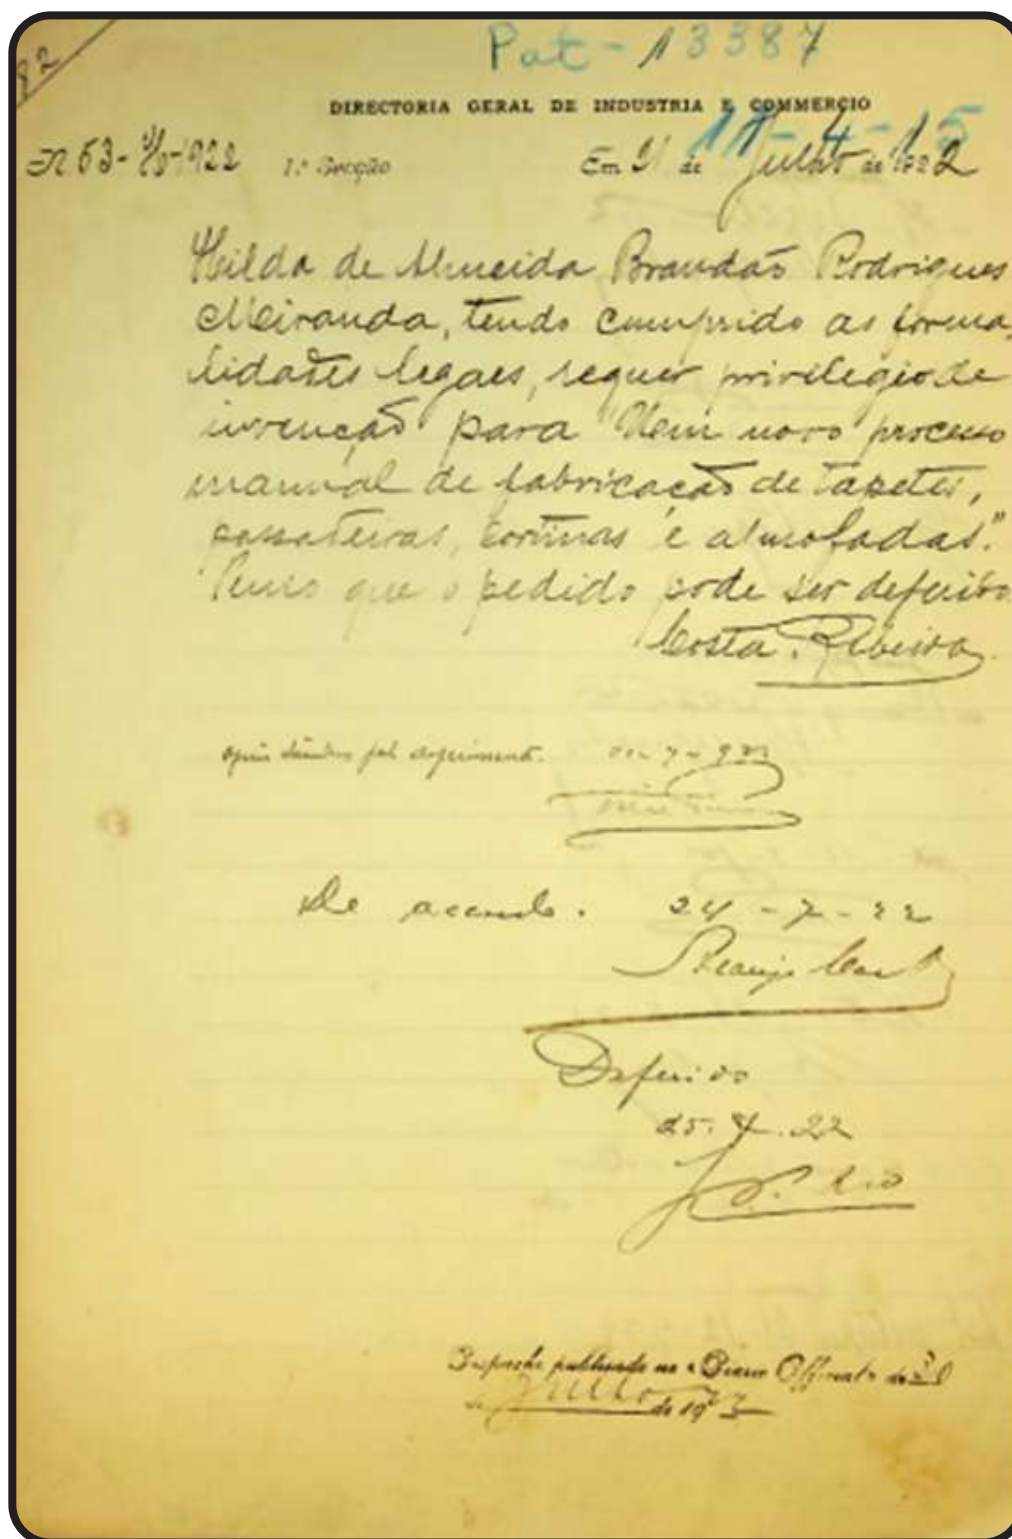 82
Pat - 13387
DIRECTORIA GERAL DE INDUSTRIA E COMMERCIO
11-4-15
1922 1.ª Secção Em 21 de Julho de 1922
Hilda de Almeida Brandão Rodrigues
Miranda, tendo cumprido as forma-
lidades legaes, requer privilegio de
invenção para "Um novo processo
manual de fabricação de tapetes,
passadeiras, cortinas e almofadas."
Penso que o pedido pode ser deferido
Costa Ribeiro
De accordo. 24-7-22
Deferido
25.7.22
Despacho publicado no "Diario Official" de
de Julho de 19